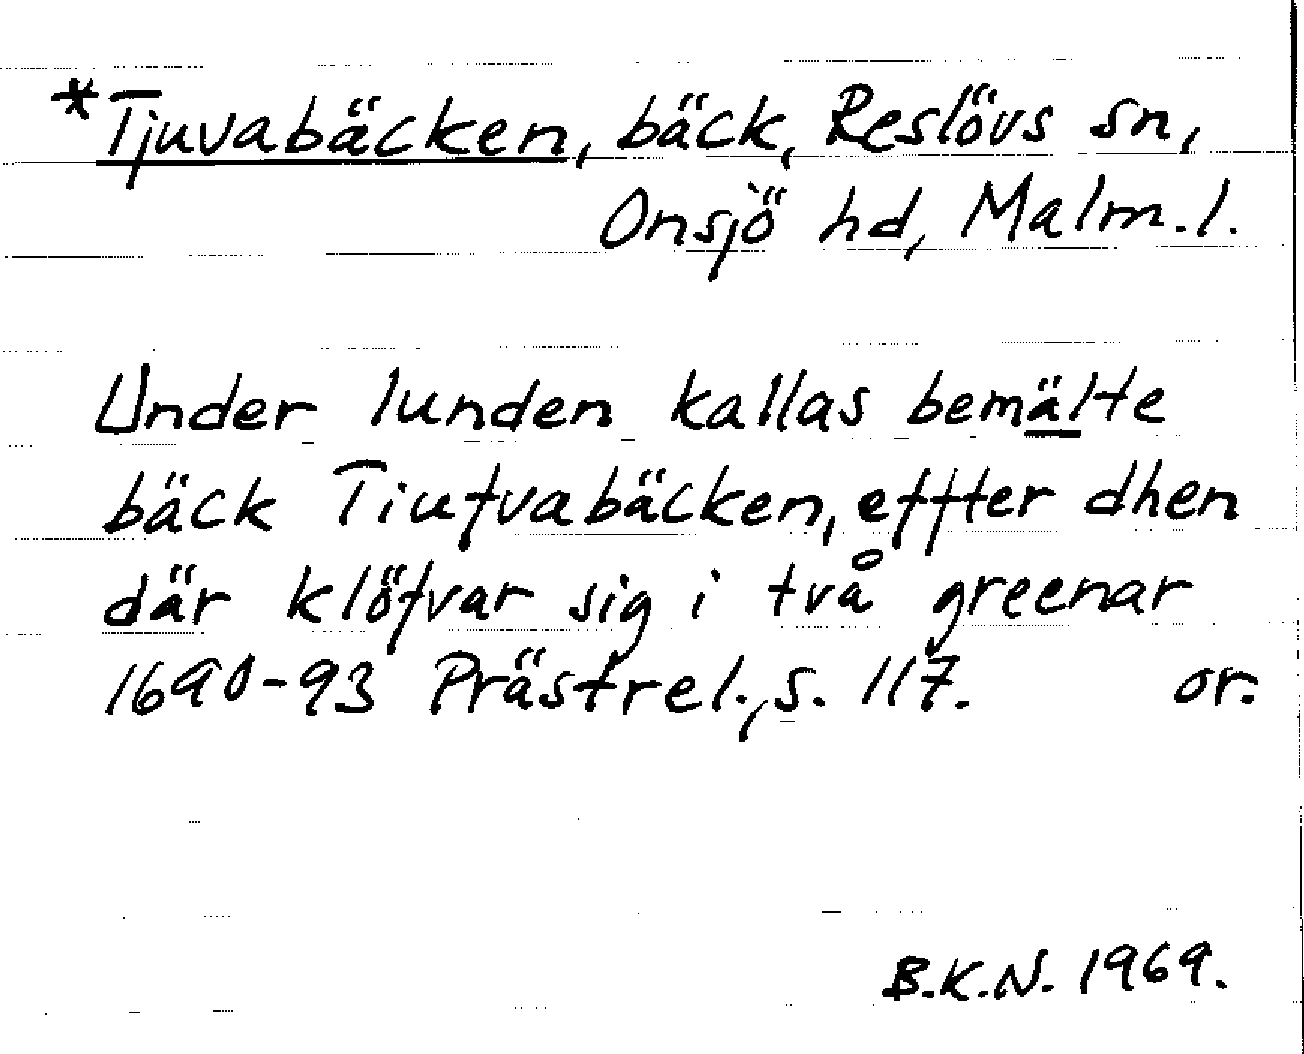 *Tjuvabäcken, bäck, Reslövs sn,
Onsjö hd, Malm.l.
Under lunden kallas bemälte
bäck Tiufvabäcken, effter dhen
där klöfvar sig i två greenar
1690-93 Prästrel., s. 117. or.
B.K.N. 1969.